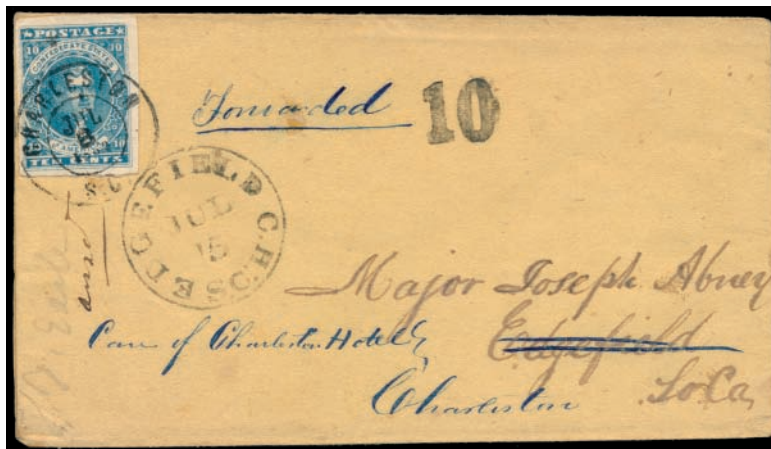 POSTAGE
10 10
CONFEDERATE STATES
OF AMERICA
TEN CENTS
CHARLESTON
JUL
S.C.
Forwarded
10
EDGEFIELD C.H. S.C.
JUL
15
ansd
Major Joseph Abney
Care of Charleston Hotel
Edgefield
Charleston
So Ca,